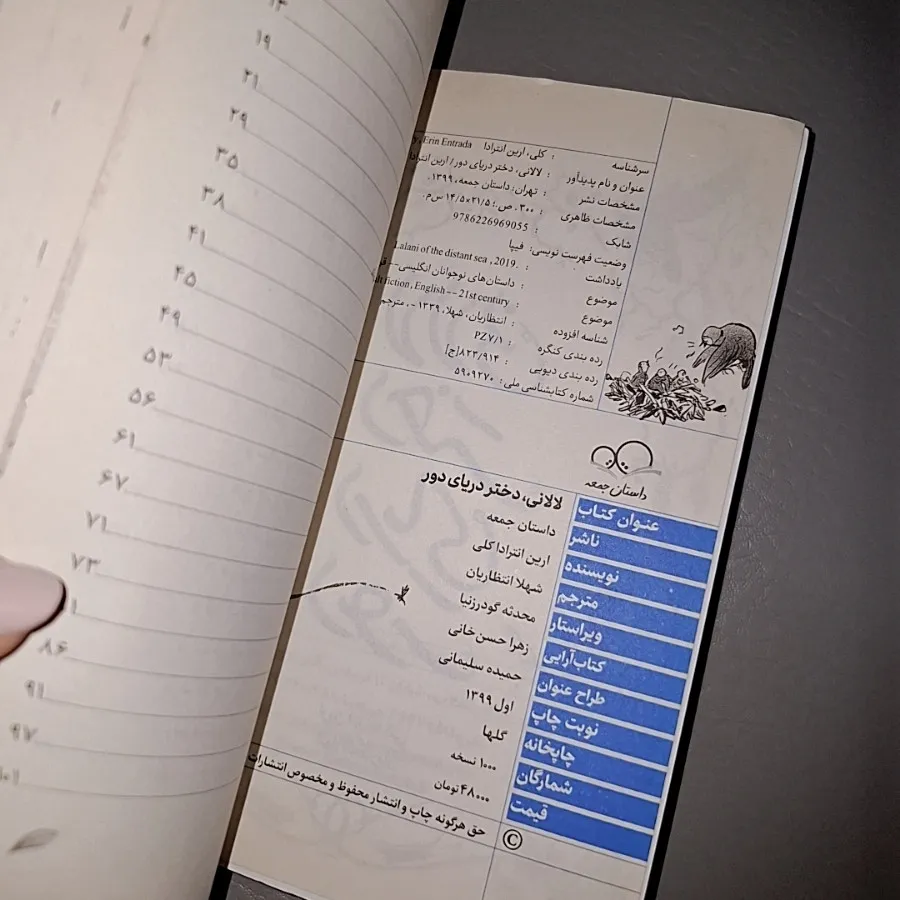 سرشناسه : کلی، ارین انترادا Erin Entrada
عنوان و نام پدیدآور : لالانی، دختر دریای دور / ارین انترادا
مشخصات نشر : تهران: داستان جمعه، ۱۳۹۹.
مشخصات ظاهری : ۳۰۰ ص.؛ ۱۴/۵×۲۱/۵ س‌م.
شابک : 9786226969055
وضعیت فهرست نویسی: فیپا
یادداشت : Lalani of the distant sea , 2019.
موضوع : داستان‌های نوجوانان انگلیسی--
موضوع : fiction, English -- 21st century
شناسه افزوده : انتظاریان، شهلا، ۱۳۳۹ -، مترجم
رده بندی کنگره : PZ۷/۱
رده بندی دیویی : ۸۲۳/۹۱۴[ج]
شماره کتابشناسی ملی: ۵۹۰۹۲۷۰
داستان جمعه
عنوان کتاب لالانی، دختر دریای دور
ناشر داستان جمعه
نویسنده ارین انترادا کلی
مترجم شهلا انتظاریان
ویراستار محدثه گودرزنیا
کتاب‌آرایی زهرا حسن‌خانی
طراح عنوان حمیده سلیمانی
نوبت چاپ اول ۱۳۹۹
چاپخانه گلها
شمارگان ۱۰۰۰ نسخه
قیمت ۴۸۰۰۰ تومان
© حق هرگونه چاپ و انتشار محفوظ و مخصوص انتشارات
۱۹
۲۱
۲۹
۳۵
۳۸
۴۱
۴۵
۴۹
۵۳
۵۶
۶۱
۶۷
۷۱
۷۳
۱
۸۶
۹۱
۹۷
۱۰۱